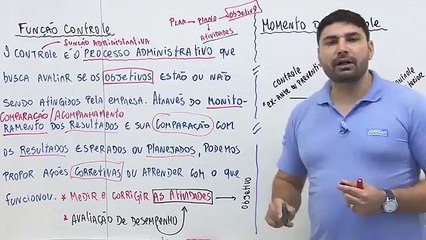 FUNÇÃO CONTROLE
FUNÇÃO ADMINISTRATIVA
PLAN → PLANO → OBJETIVO
↳ ATIVIDADES
O CONTROLE É O PROCESSO ADMINISTRATIVO QUE
BUSCA AVALIAR SE OS OBJETIVOS ESTÃO OU NÃO
SENDO ATINGIDOS PELA EMPRESA. ATRAVÉS DO MONITO-
COMPARAÇÃO/ACOMPANHAMENTO
RAMENTO DOS RESULTADOS E SUA COMPARAÇÃO COM
OS RESULTADOS ESPERADOS OU PLANEJADOS, PODEMOS
PROPOR AÇÕES CORRETIVAS OU APRENDER COM O QUE
FUNCIONOU. * MEDIR E CORRIGIR AS ATIVIDADES → OBJETIVO
* AVALIAÇÃO DE DESEMPENHO
MOMENTO
CONTROLE